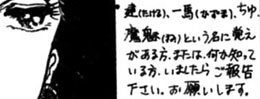 ・建(たける)、一馬(かずま)、ちゅ
魔魅(まみ)という名に覚え
がある方、または、何か知って
いる方、いましたらご報告
下さい。お願いします。